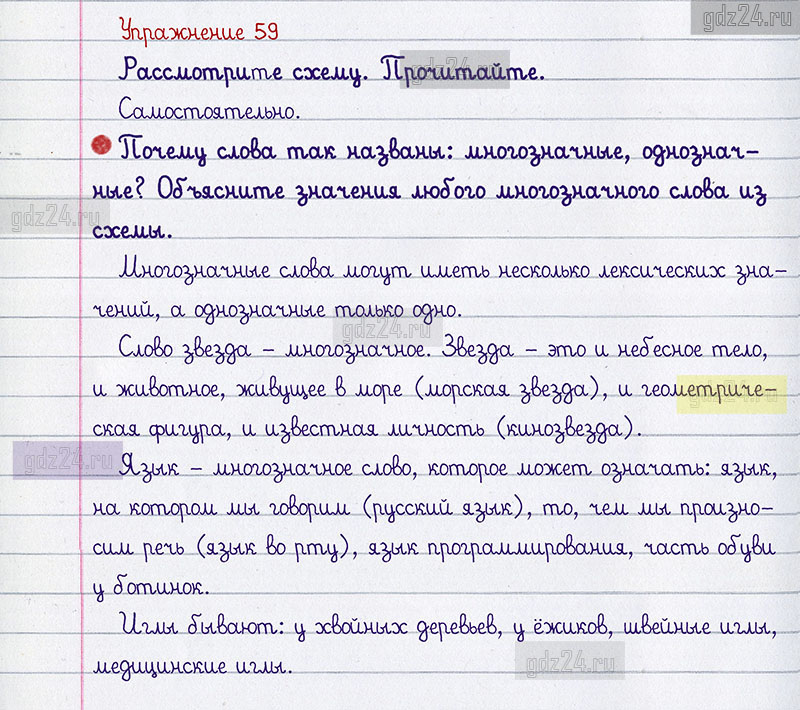 gdz24.ru
Упражнение 59
Рассмотрите схему. Прочитайте.
gdz24.ru
Самостоятельно.
Почему слова так названы: многозначные, однознач-
ные? Объясните значения любого многозначного слова из
gdz24.ru
схемы.
Многозначные слова могут иметь несколько лексических зна-
чений, а однозначные только одно.
gdz24.ru
Слово звезда – многозначное. Звезда – это и небесное тело,
и животное, живущее в море (морская звезда), и геометриче-
gdz24.ru
ская фигура, и известная личность (кинозвезда).
gdz24.ru
Язык – многозначное слово, которое может означать: язык,
на котором мы говорим (русский язык), то, чем мы произно-
сим речь (язык во рту), язык программирования, часть обуви
у ботинок.
Иглы бывают: у хвойных деревьев, у ёжиков, швейные иглы,
медицинские иглы.
gdz24.ru